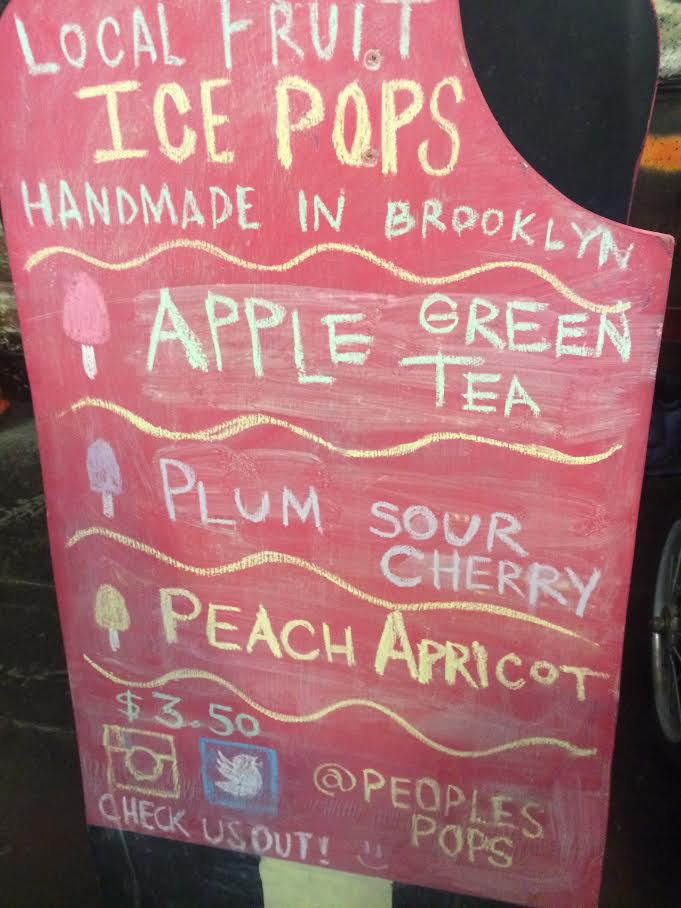 LOCAL FRUIT
ICE POPS
HANDMADE IN BROOKLYN
APPLE GREEN
TEA
PLUM SOUR
CHERRY
PEACH APRICOT
$3.50
@PEOPLES
POPS
CHECK US OUT!